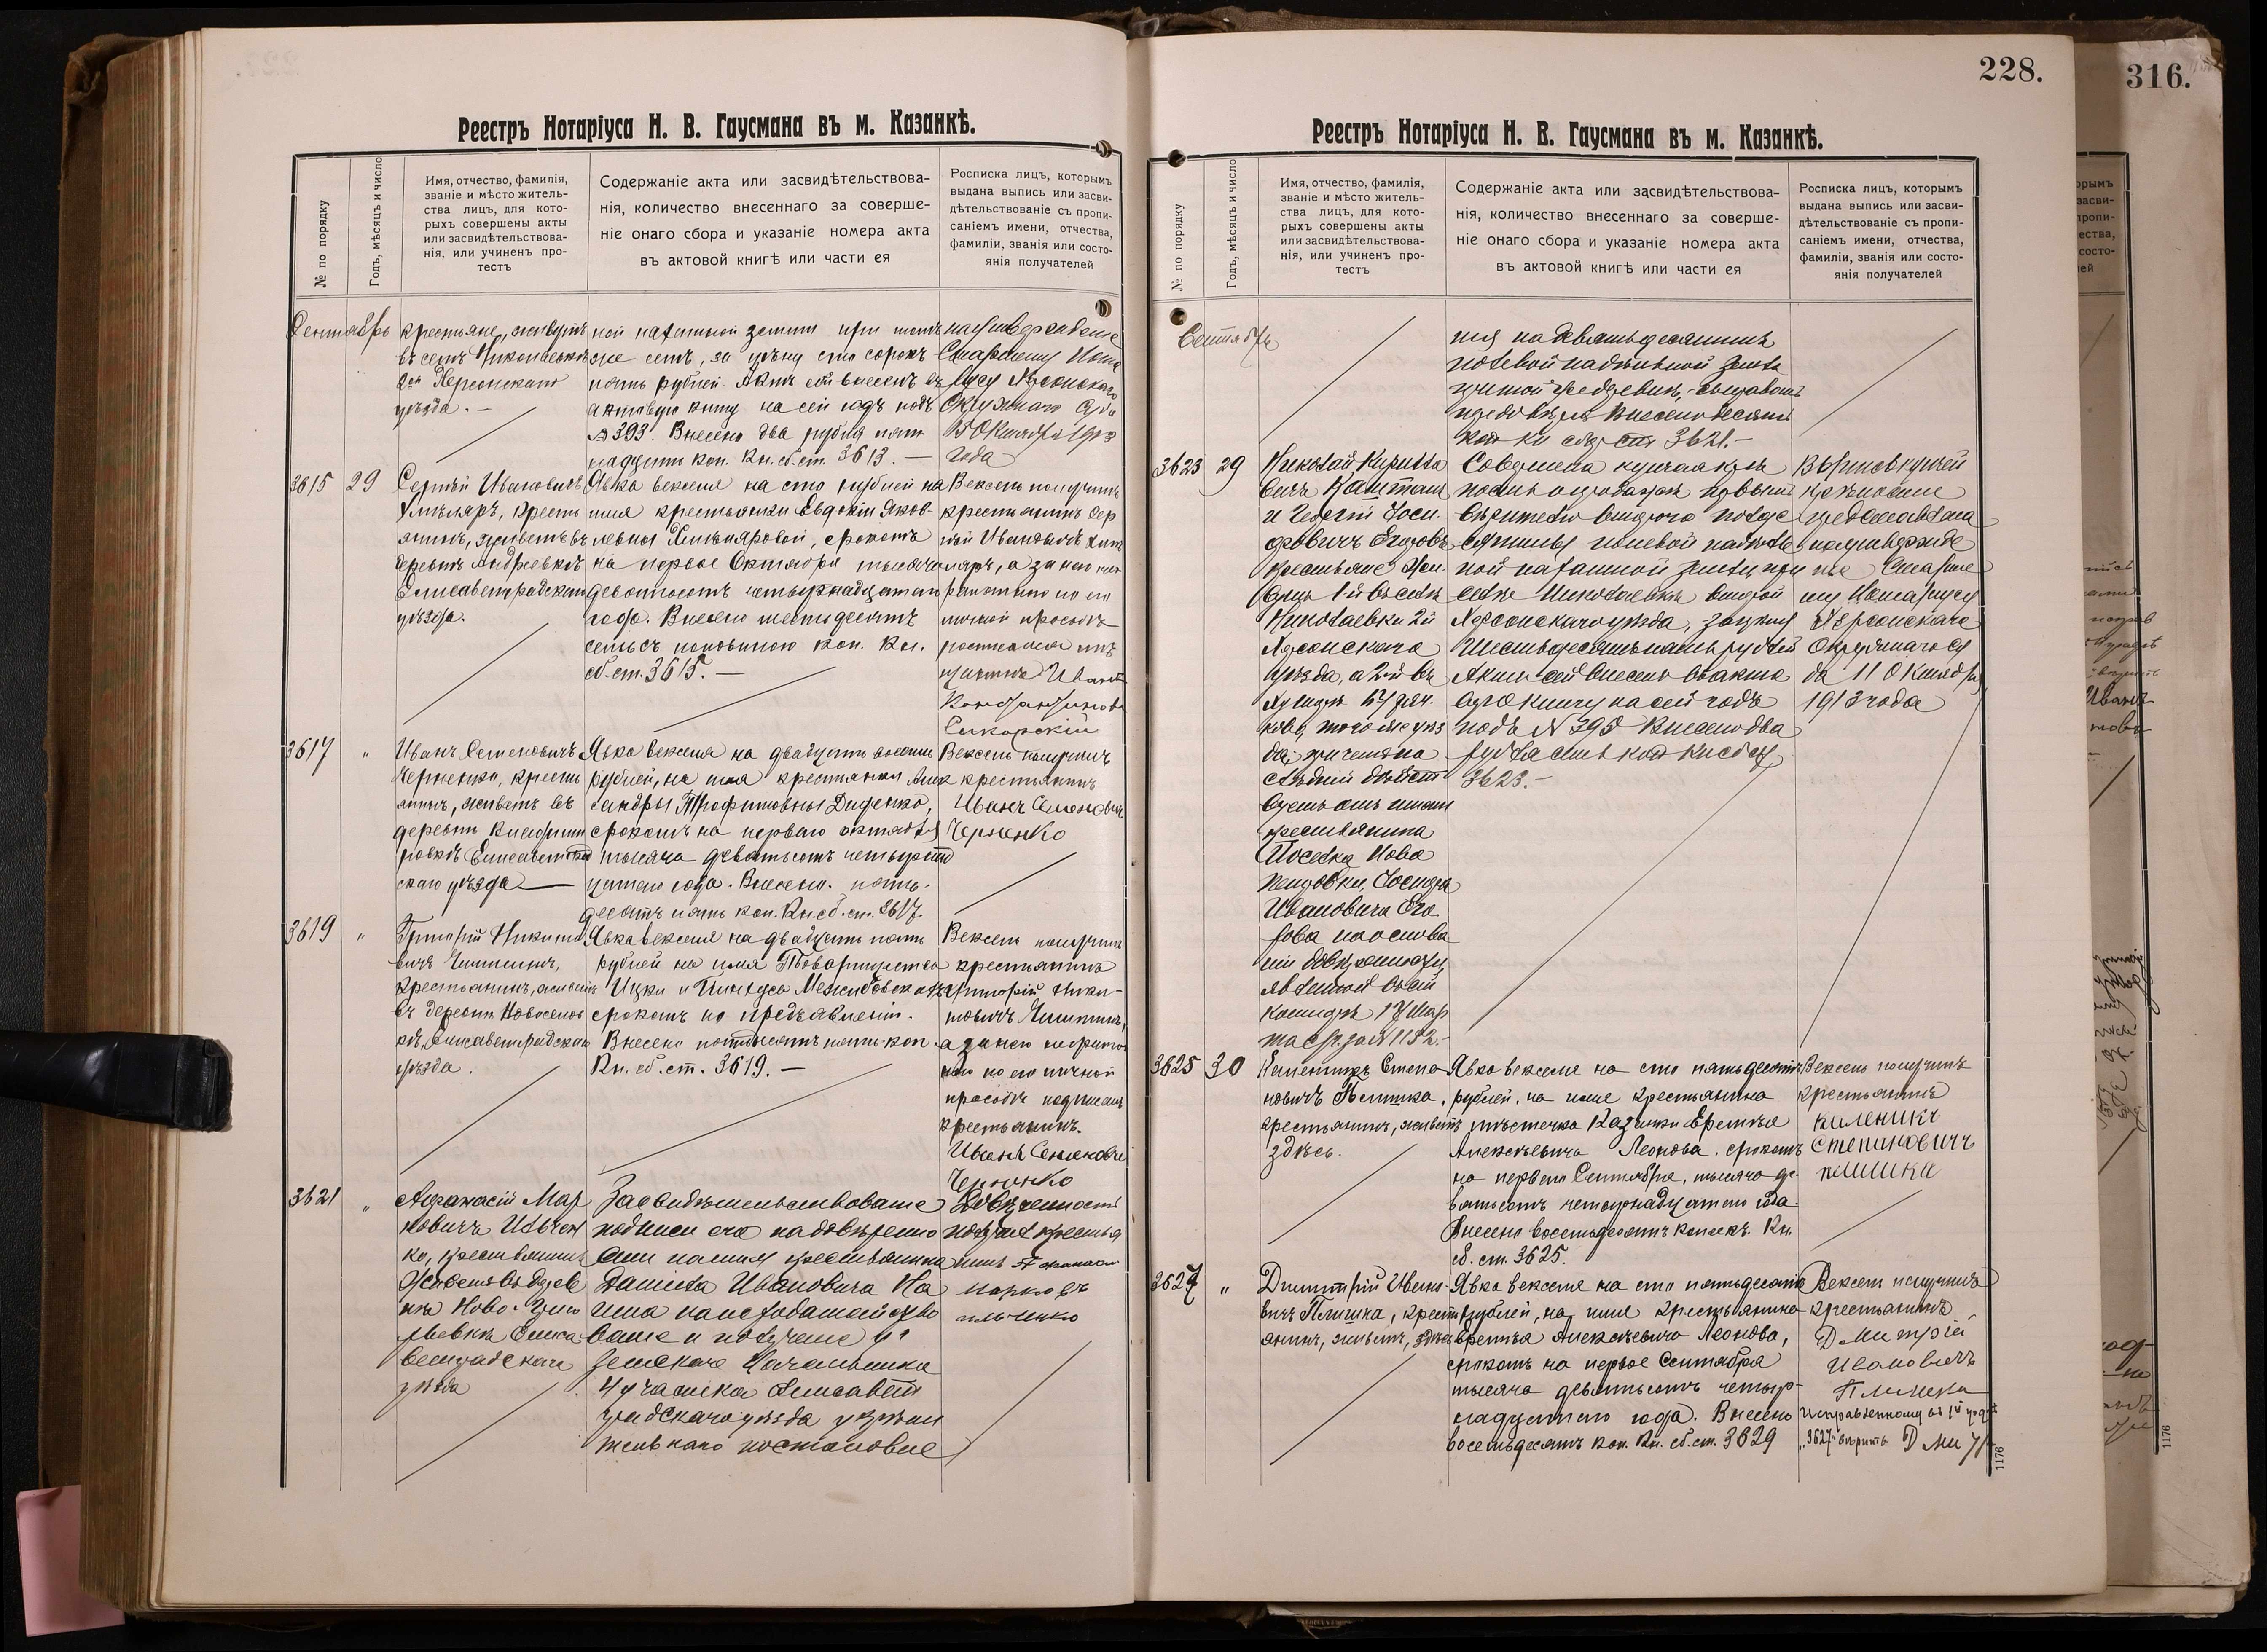 228.
316.
Реестръ Нотаріуса Н. В. Гаусмана въ м. Казанкѣ.
№ по порядку
Годъ, мѣсяцъ и число
Имя, отчество, фамилія,
званіе и мѣсто житель-
ства лицъ, для кото-
рыхъ совершены акты
или засвидѣтельствова-
нія, или учиненъ про-
тестъ
Содержаніе акта или засвидѣтельствова-
нія, количество внесеннаго за соверше-
ніе онаго сбора и указаніе номера акта
въ актовой книгѣ или части ея
Росписка лицъ, которымъ
выдана выпись или засви-
дѣтельствованіе съ пропи-
саніемъ имени, отчества,
фамиліи, званія или состо-
янія получателей
Сентябрь
крестьяне, живутъ
въ селѣ Николаевкѣ
2й Херсонскаго
уѣзда.
ной пахатной земли при томъ
же селѣ, за цѣну сто сорокъ
пять рублей. Актъ сей внесенъ въ
актовую книгу на сей годъ подъ
№ 393. Внесено два рубля пят
надцать коп. Кн. сб. ст. 3613.
на утвержденіе
Старшему Нота
ріусу Херсонскаго
Окружнаго Суда
15 Октября 1913
года
3615
29
Сергѣй Ивановичъ
крестья
нинъ, живетъ въ
деревнѣ Андреевкѣ
Елисаветградскаго
уѣзда.
Явка векселя на сто рублей на
имя крестьянки Евдокіи Яков-
левны срокомъ
на первое Октября тысяча
девятьсотъ четырнадцатаго
года. Внесено шестьдесятъ
семь съ половиною коп. Кн.
сб. ст. 3615.
Вексель получилъ
крестьянинъ Сер
гѣй Ивановичъ
а за него не
грамотнаго по его
личной просьбѣ
росписался
Иванъ
Константиновъ
Сикорскій
3617
"
Иванъ Семеновичъ
Черненко, кресть
янинъ, живетъ въ
деревнѣ
Елисаветград
скаго уѣзда
Явка векселя на двадцать восемь
рублей, на имя крестьянки Алек
сандры Трофимовны Диденко,
срокомъ на перваго октября
тысяча девятьсотъ четырнад
цатаго года. Внесено пять-
десятъ пять коп. Кн. сб. ст. 3617.
Вексель получилъ
крестьянинъ
Иванъ Семеновичъ
Черненко
3619
"
Григорій Никито
вичъ
крестьянинъ, живетъ
въ деревнѣ Новоселов
кѣ, Елисаветградскаго
уѣзда.
Явка векселя на двадцать пять
рублей на имя Товарищества
Ицки и Пинкуса Межибовскихъ
срокомъ по предъявленіи.
Внесено пятьдесятъ пять коп.
Кн. сб. ст. 3619.
Вексель получилъ
крестьянинъ
Григорій Ники-
товичъ
а за него неграмот
наго по его личной
просьбѣ подписался
крестьянинъ.
Иванъ Семеновичъ
Черненко
3621
"
Афанасій Мар
ковичъ Ильчен
ко, крестьянинъ
живетъ въ дерев
нѣ Ново-Григо
рьевкѣ Елиса
ветградскаго
уѣзда
Засвидѣтельствованіе
подписи его на довѣренно
сти на имя крестьянина
Данила Ивановича
на исходатайство
ваніе и полученіе у
Земскаго Начальника
4 участка Елисавет
градскаго уѣзда
постановле
Довѣренность
получилъ крестья
нинъ Афанасій
Марковъ
ильченко
Реестръ Нотаріуса Н. В. Гаусмана въ м. Казанкѣ.
№ по порядку
Годъ, мѣсяцъ и число
Имя, отчество, фамилія,
званіе и мѣсто житель-
ства лицъ, для кото-
рыхъ совершены акты
или засвидѣтельствова-
нія, или учиненъ про-
тестъ
Содержаніе акта или засвидѣтельствова-
нія, количество внесеннаго за соверше-
ніе онаго сбора и указаніе номера акта
въ актовой книгѣ или части ея
Росписка лицъ, которымъ
выдана выпись или засви-
дѣтельствованіе съ пропи-
саніемъ имени, отчества,
фамиліи, званія или состо-
янія получателей
Сентябрь
нія на девять десятинъ
полевой надѣльной земли
Внесено десять
коп. Кн сбор ст 3621.
3623
29
Николай Кирилло
вичъ Каштанъ
и Георгій Іоси
фовичъ Егоровъ
крестьяне жи
вутъ 1й въ селѣ
Николаевкѣ 2й
Херсонскаго
уѣзда, а 2й въ
хуторѣ
того же уѣз
да,
крестьянина
поселка Ново
Іосифа
Ивановича Его
рова на основа
ніи довѣренности,
явленной въ сей
конторѣ 17 Мар
та с/г. за № 1152.
Совершена купчая крѣ
пость о продажѣ первымъ
второму
десятины полевой надѣль
ной пахатной земли при
селѣ Николаевкѣ второй
Херсонскаго уѣзда, за цѣну
шестьдесятъ пять рублей
Актъ сей внесенъ въ акто
вую книгу на сей годъ
подъ № 395 Внесено два
рубля семь коп Кн сб ст
3623.
Выпись купчей
крѣпости
представлена
на утвержде
ніе Старше
му Нотаріусу
Херсонскаго
Окружнаго Су
да 11 Октября
1913 года
3625
30
Калениқъ Степа
новичъ Плишка,
крестьянинъ, живетъ
здѣсь.
Явка векселя на сто пятьдесятъ
рублей, на имя крестьянина
мѣстечка Казанки Еремѣя
Алексѣевича Леонова, срокомъ
на первое Сентября, тысяча де-
вятьсотъ четырнадцатаго года.
Внесено восемьдесятъ копѣекъ. Кн.
сб. ст. 3625.
Вексель получилъ
крестьянинъ
каленикъ
степановичъ
плишка
3627
"
Дмитрій Ивано-
вичъ Плишка, кресть
янинъ, живетъ, здѣсь
Явка векселя на сто пятьдесятъ
рублей, на имя крестьянина
Еремѣя Алексѣевича Леонова,
срокомъ на первое Сентября
тысяча девятьсотъ четыр-
надцатаго года. Внесено
восемьдесятъ коп. Кн. сб. ст. 3629
Вексель получилъ
крестьянинъ
Дмитрій
Ивановичъ
Плишка
Исправленному въ 1й графѣ
"3627" вѣрить
1176
1176